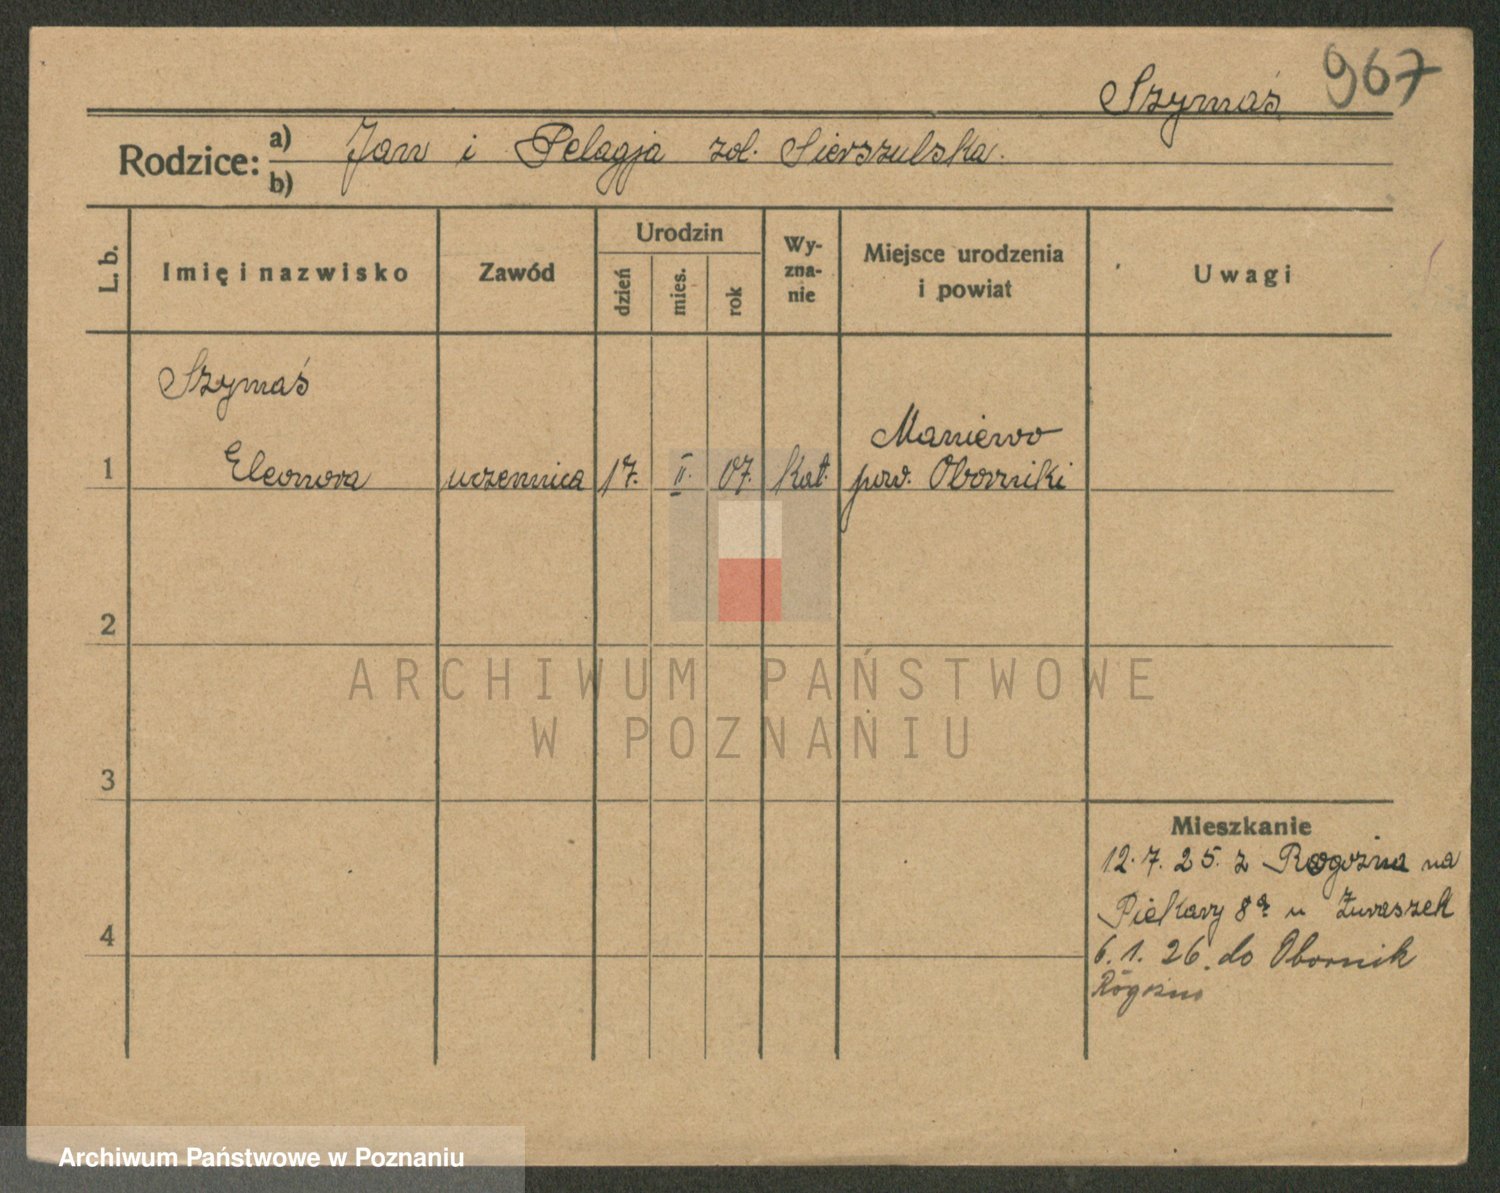 Szymaś 967
Rodzice: a) Jan i Pelagja zol. Sierszulska.
b)
L. b. Imię i nazwisko Zawód Urodzin dzień mies. rok Wy-zna-nie Miejsce urodzenia i powiat Uwagi
Szymaś
Maniewo
1 Eleonora uczennica 17. II. 07. kat. pow. Oborniki
2
ARCHIWUM PAŃSTWOWE
W POZNANIU
3
Mieszkanie
12.7.25. z Rogoźna na
Piekary 8a u
4
6.1.26. do Obornik
Rogoźno
Archiwum Państwowe w Poznaniu